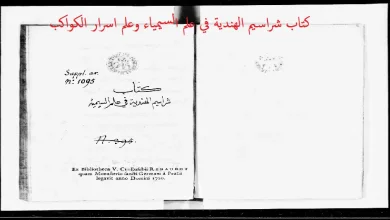 كتاب شراسيم الهندية في علم السيمياء وعلم اسرار الكواكب
Suppl. ar.
n.° 1095
كتاب
شراسيم الهندية في علم السيمية
Ex Bibliotheca V. Cl. Eusebii Renaudot
quam Monasterio sancti Germani à Pratis
legavit anno Domini 1720.